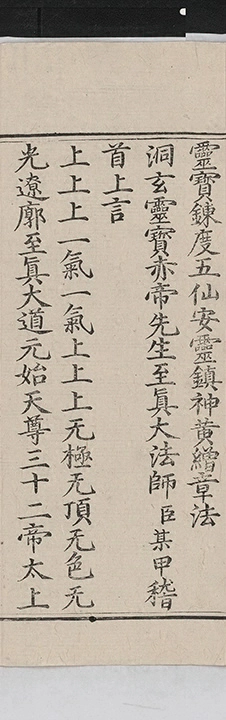 靈寶鍊度五仙安靈鎮神黃繒章法
洞玄靈寶赤帝先生至眞大法師臣某甲稽
首上言
上上上一氣一氣上上上无極无頂无色无
光遼廓至眞大道元始天尊三十二帝太上